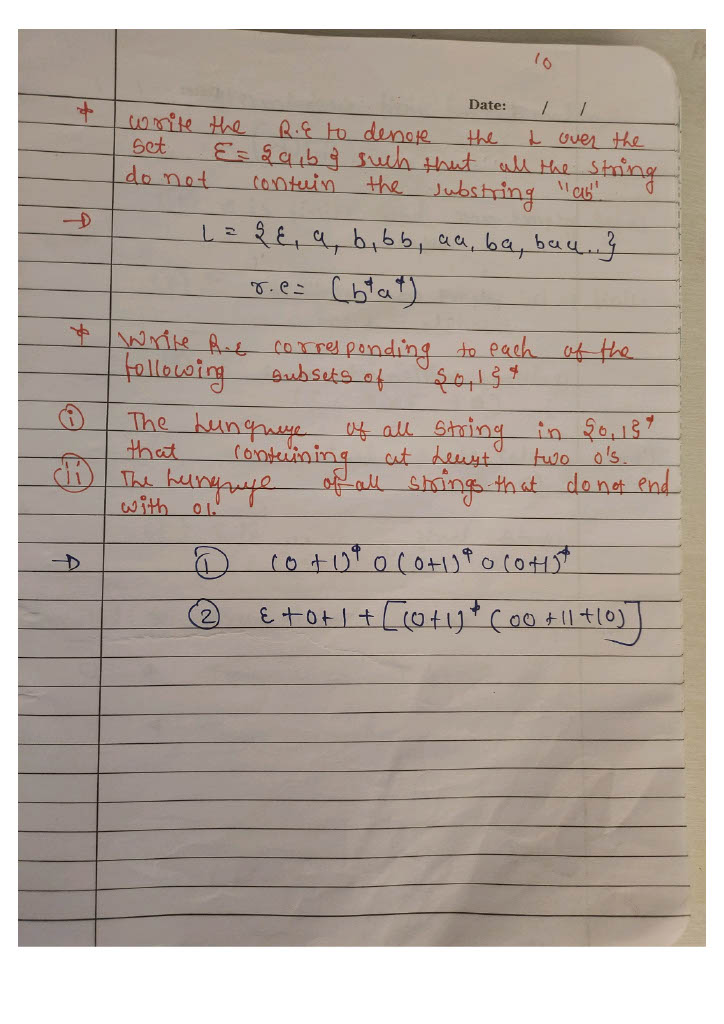 10
Date: / /
* Write the R.E to denote the L over the
set Σ = {a,b} such that all the string
do not contain the substring "ab"
→ L = {ε, a, b, bb, aa, ba, baa..}
r.e = (b*a*)
* Write R.E corresponding to each of the
following subsets of {0,1}*
(i) The Language of all string in {0,1}*
that containing at least two 0's.
(ii) The Language of all strings that do not end
with 01.
→ (1) (0+1)* 0 (0+1)* 0 (0+1)*
(2) ε+0+1+[(0+1)* (00+11+10)]